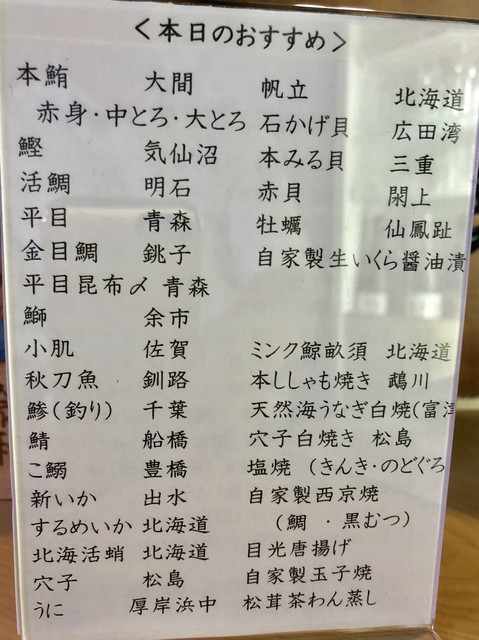 ＜本日のおすすめ＞
本鮪 大間
赤身・中とろ・大とろ
鰹 気仙沼
活鯛 明石
平目 青森
金目鯛 銚子
平目昆布〆 青森
鰤 余市
小肌 佐賀
秋刀魚 釧路
鯵(釣り) 千葉
鯖 船橋
こ鰯 豊橋
新いか 出水
するめいか 北海道
北海活蛸 北海道
穴子 松島
うに 厚岸浜中
帆立 北海道
石かげ貝 広田湾
本みる貝 三重
赤貝 閖上
牡蠣 仙鳳趾
自家製生いくら醤油漬
ミンク鯨畝須 北海道
本ししゃも焼き 鵡川
天然海うなぎ白焼(富津
穴子白焼き 松島
塩焼 (きんき・のどぐろ
自家製西京焼
(鯛 ・黒むつ)
目光唐揚げ
自家製玉子焼
松茸茶わん蒸し